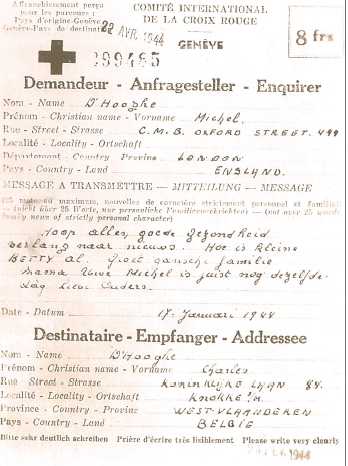 Affranchissement perçu
pour les parcours:
Pays d'origine-Genève
Genève-Pays de destination
22 AVR. 1944
COMITÉ INTERNATIONAL
DE LA CROIX ROUGE
GENÈVE
8 frs
299485
Demandeur - Anfragesteller - Enquirer
Nom - Name D'Hooghe
Prénom - Christian name - Vorname Michel.
Rue - Street - Strasse C.M.B. OXFORD STREET. 499
Localité - Locality - Ortschaft
Département - County Provinz LONDON
Pays - Country - Land ENGLAND.
MESSAGE A TRANSMETTRE — MITTEILUNG — MESSAGE
(25 mots au maximum, nouvelles de caractère strictement personnel et familial)
— (nicht über 25 Worte, nur persönliche Familiennachrichten) — (not over 25 words
family news of strictly personal character)
Hoop allen goede gezondheid
verlang naar nieuws. Hoe is kleine
BETTY al. Groet gansche familie
mama Uwe Michel is juist nog dezelfde-
Dag lieve Ouders.
Date - Datum 17. Januari 1944
Destinataire - Empfanger - Addressee
Nom - Name D'Hooghe
Prénom - Christian name - Vorname Charles.
Rue Street - Strasse KONINKLIJKE LAAN 84.
Localité - Locality - Ortschaft KNOKKE
Province - County - Provinz WEST-VLAANDEREN
Pays - Country - Land BELGIE
Bitte sehr deutlich schreiben Prière d'écrire très lisiblement Please write very clearly
1944